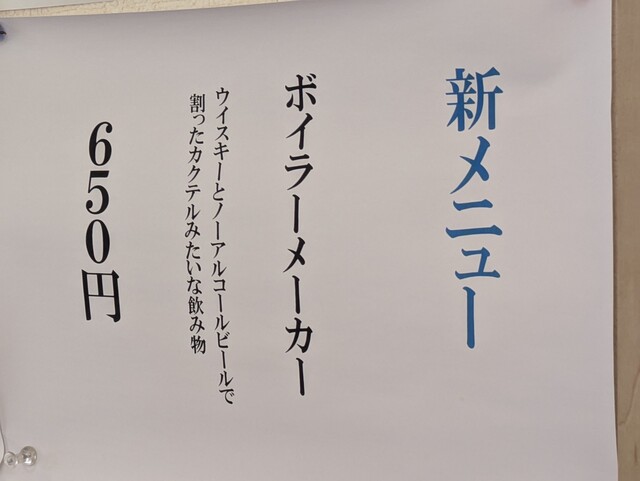 新メニュー
ボイラーメーカー
ウイスキーとノーアルコールビールで
割ったカクテルみたいな飲み物
650円